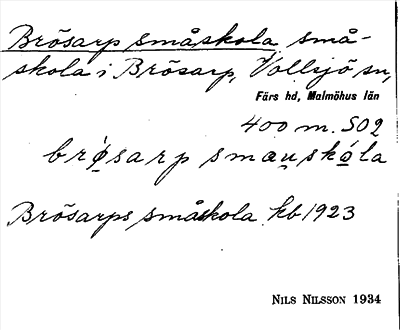 Brösarp småskola små-
skola i Brösarp, Vollsjö sn,
Färs hd, Malmöhus län
400 m. SO2
brø̀sarp smau̯skóla
Brösarps småskola kb 1923
NILS NILSSON 1934